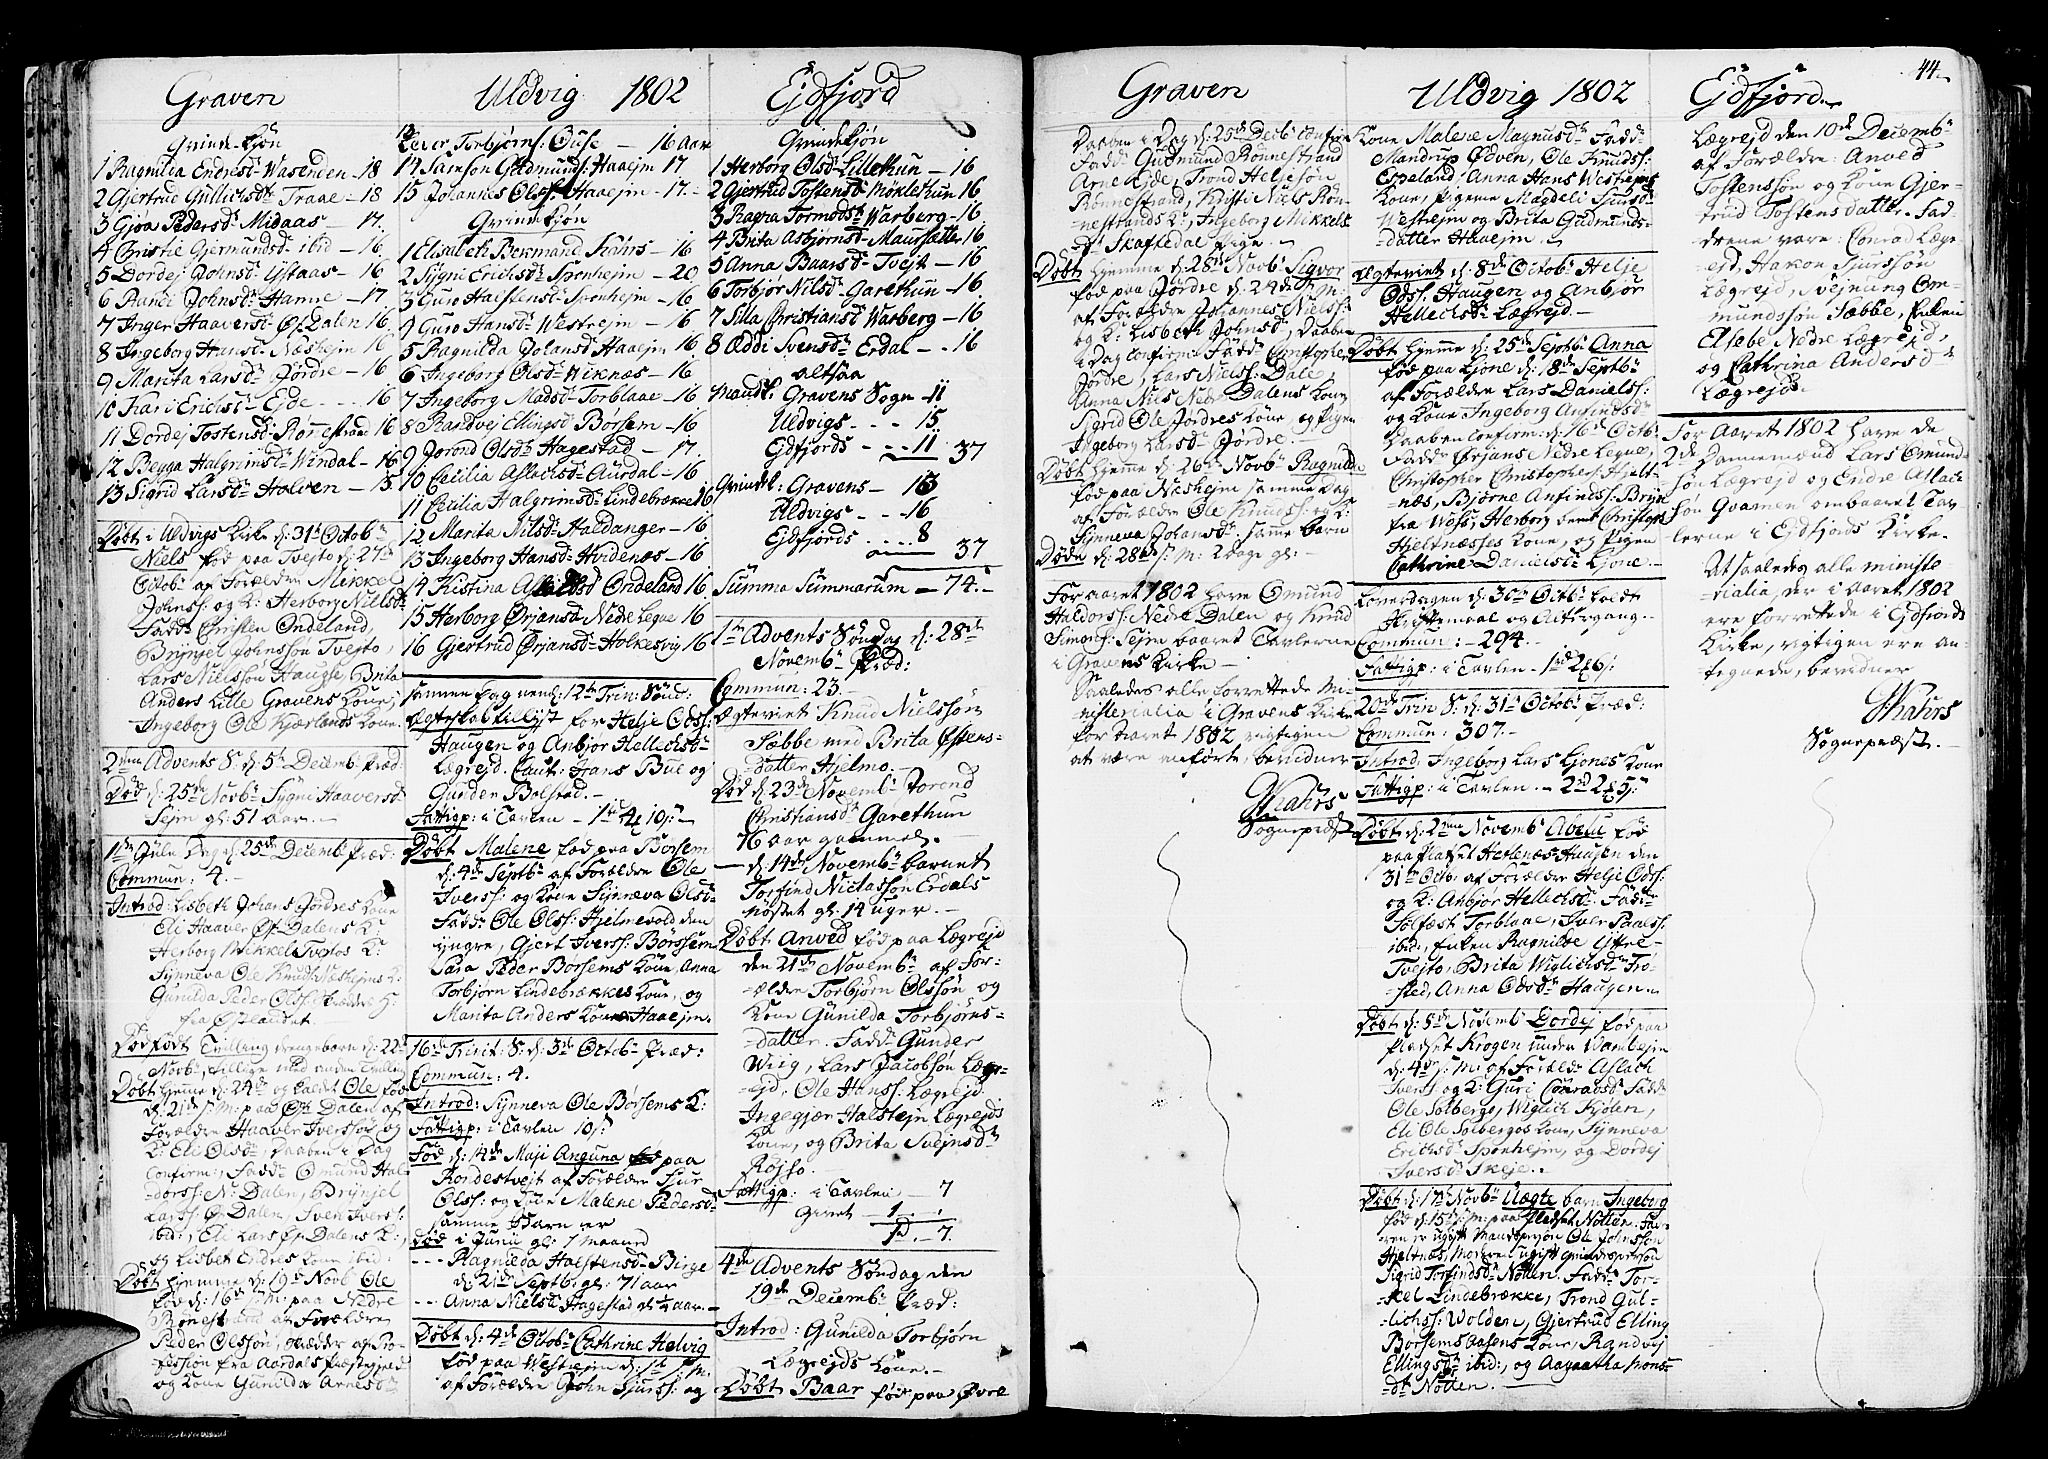 Graven
Grinde-Kjøn
1 Ragnilda Endresdr Wasenden - 18
2 Gjertrud Gullichsdr Traae - 18
3 Gjøa Pedersdr Midaas - 17.
4 Christie Gjermundsdr ibid - 16
5 Dordej Johnsdr Ystaas - 16
6 Johnsdr Hamre - 17
7 Inger Haaversdr Øf. Dalen 16.
8 Ingeborg Hansdr Næshejm 16
9 Marita Larsdr Djørdre - 16
10 Kari Erichsdr Ejde - 16
11 Dordej Tostensdr Rønnestrand 16
12 Bøyga Halgrimsdr Windal - 16
13 Sigrid Larsdr Holven - 15
Døbt i Uldvigs Kirke d: 31te Octobr
Niels fød paa Tvejto d: 27de
Octobr af Forældre Mikkel
Johnss: og K: Herborg Nielsdr
Faddr Christen Ondeland,
Brynjel Johnssøn Tvejto,
Lars Nielssøn Haugse, Brita
Anders Lille Gravens Kone,
Ingeborg Ole Kjærlands Kone.
2den Advents S: d: 5te Decemb: Præd:
Død d: 25de Novbr Sygni Haaversdr
Sejm gl: 51 aar.
1ste Jule Dag d: 25de Decemb: Præd:
Commun: 4.
Introd: Lisbeth Johans Djørdres Kone
Eli Haaver Øf. Dalens K:
Herborg Mikkel Tvejtos K:
Synneva Ole Knuds Næshejms K:
Gunilda Peder Olss:
fra Østlandet.
Dødfødt Tvilling drengebarn d: 22de
Novb:
Døbt hjemme d: 24de og kaldt Ole fød
d: 21de s: M: paa Øf. Dalen af
Forældre Haaver Iverssøn og
K: Eli Olsdr, Daaben i Dag
Confirm:, Faddr Omund Hal-
dorss: N: Dalen, Brynjel
Larss: Øf Dalen, Sven Iverss:
ibid:, Eli Lars Øf Dalens K:,
og Lisbet Endres Kone ibid:
Døbt hjemme d: 19de Novb: Ole
fød d: 16de s: M: paa Nedre
Rønestrand af Forældre
Peder Olssøn,
fra Aardals Præstegield
og Kone Gunilda Arnesdr

Uldvig 1802
13 Lever Torbjørns: Ouse - 16 aar
14 Samson Gudmunds: Haaejm 17
15 Johannes Olss: Haaejm - 17.
Qvindekjøn
1 Elisabeth Beckmand Fahrs - 16
2 Sygni Erichsdr Sponhejm - 20
3 Guro Halstensdr Sponhejm - 16
4 Guro Hansdr Westrejm - 16
5 Ragnilda Johansdr Haaejm 16
6 Ingeborg Olsdr Wiknæs - 16
7 Ingeborg Madsdr Torblaae - 16
8 Randvej Ellingsdr Børsem - 16
9 Jorond Olsdr Hagestad - 17.
10 Cecilia Aslachsdr Aurdal - 16
11 Cecilia Halgrimsdr Lindebrække 16
12 Marita Nilsdr Haldanger - 16
13 Ingeborg Hansdr Hvidenæs - 16
14 Kistina Ondeland 16
15 Herborg Ørjansdr Nedre Leque 16
16 Gjertrud Ørjansdr Holkesvig 16
Samme Dag nemlig: 12te Trin: Sønd:
Ægteskab tillyst for Helje Odss:
Haugen og Anbjør Hellechsdr
Lægrejd. Caut: Hans Bue og
Gunder Bolstad.
Fattigp: i Tavlen - 1rd 4 10s
Døbt Malene fød paa Børsem
d: 4de Septbr af Forældre Ole
Iverss: og Kone Synneva Olsdr
Faddr Ole Olss: Hjelmevold den
yngre, Gjert Iverss: Børsem
Sara Peder Børsems Kone, Anna
Torbjørn Lindebrækkes Kone, og
Marita Anders Kone Haaejm.
16de Trinit: S: d: 3de Octobr Præd:
Commun: 4.
Introd: Synneva Ole Børsems K:
Fattigp: i Tavlen 10s
Fød d: 14de Maji Anguna paa
Rordestvejt af Forældre Sjur
Olss: og Kone Malene Pedersdr
Samme Barn er
død i Junii gl: 1 Maaned
--- Ragnilda Halstensdr Birge
d: 21de Septb: gl: 71 aar
--- Anna Nielsdr Hagestad aar.
Døbt d: 4de Octobr Cathrine Helvig
fød paa Westrejm d: 1ste s: M:
af Forældre John Sjurss: og

Ejdfjord
Qvindekjøn
1 Herborg Olsdr Lillethun - 16
2 Gjertrud Tostensdr Møklethun 16
3 Ragna Tormodsdr Warberg - 16.
4 Brita Asbjørnsdr Maursætter 16
5 Anna Baarsdr Tvejt - 16
6 Torbjør Nilsdr Garethun - 16
7 Silla Christiansdr Warberg - 16
8 Oddi Svensdr Erdal - 16
altsaa
Mandk: Gravens Sogn - 11
Uldvigs - 15.
Ejdfjords - 11 37
Qvindek: Gravens - 13
Uldvigs - 16
Ejdfjords - 8
37
Summa Summarum - 74.
1ste Advents Søndag d: 28de
Novembr Præd:
Commun: 23.
Ægteviet Knud Nielssøn
Sæbbe med Brita Østens-
datter Hjelmo.
Død d: 23de Novembr Jorend
Christiansdr Garethun
76 aar gammel.
d: 14de Novembr barnet
Torfind Niclassøn Erdals
gl: 14 uger.
Døbt Anved fød paa Lægrejd
den 21de Novembr af For-
ældre Torbjørn Olssøn og
Kone Gunilda Torbjørns-
datter. Faddr Gunder
Wiig, Lars Jacobsøn Læg-
rejd, Ole Hanss: Lægrejd
Ingegjær Halstejn Lægrejds
Kone, og Brita Svejnsdr
Røjso.
Fattigp: i Tavlen - 7
Givet - 1 -
1rd - 7.
4de Advents Søndag den
19de Decembr Præd:
Introd: Gunilda Torbjørn
Lægrejds Kone.
Døbt Baar fød paa Øvre

Graven
Daaben i Dag d: 25de Decb: confirm:
Faddr Gudmund Rønnestrand
Arne Ejde, Trond Heljesøn
Rønnestrand, Kristi Niels Røn-
nestrands K:, Ingeborg Mikkels-
dr Skaftedal Pige.
Døbt hjemme d: 28de Novbr Sigvor
fød paa Djørdre d: 24de s: M:
af Forældre Johannes Nielss:
og K: Lisbeth Johnsdr, Daaben
i Dag confirm: Faddr Christopher
Djørdre, Lars Nielss: Dale,
Anna Nils Nedr Dalens Kone
Sigrid Ole Djørdres Kone og Pigen
Ingeborg Larsdr Djørdre.
Døbt hjemme d: 26de Novbr Ragnilda
fød paa Neshejm samme Dag
af Forældre Ole Knuds: og K:
Synneva Johansdr: same barn
Døde d: 28de s: M: 2 dage gl:
For aaret 1802 have Omund
Haldorss: Nedre Dalen og Knud
Simons: Sejm baaret Tavlerne
i Gravens Kirke -
Saaledes alle forrettede Mi-
nisterialia i Gravens Kirke
for Aaret 1802 rigtigen
at være anførte, bevidner
Fahrs
Sognepræst

Uldvig 1802
Kone Malene Magnusdr Faddr
Mandrup Ødven, Ole Knudss:
Espeland, Anna Hans Westrejms
Kone, Pigerne Magdeli Sjursdr
Westrejm og Brita Gudmunds-
datter Haaejm.
Ægteviet d: 8de Octobr Helje
Odss: Haugen og Anbjør
Hellechsdr Lægrejd.
Døbt hjemme d: 25de Septbr Anna
fød paa Ljone d: 18de Septbr
af Forældre Lars Danielss:
og Kone Ingeborg Anfindsdr
Daaben confirm: d: 16de Octbr
Faddr Ørjans Nedre Leque,
Christopher Christophers: Hjelt-
næs, Bjørne Anfindss: Bryn
fra Woss, Herborg Christoph
Hjeltnæsses Kone, og Pigen
Cathrine Danielsdr Ljone.
Løverdagen d: 30te Octbr holdt
Skriftemaal og Altergang.
Commun: - 294.
Fattigp: i Tavlen - 1rd 2 6s
20de Trin S: d: 31te Octobr Præd:
Commun: 307.
Introd: Ingeborg Lars Ljones Kone
Fattigp: i Tavlen - 2rd 2 5s
Døbt d: 2den Novembr Abelu fød
paa Pladset Hetlenæs Haugen den
31te Octb: af Forældre Helje Odss:
og K: Anbjør Hellechsdr Faddr
Solfest Torblaae, Iver Paalss:
ibid:, Enken Ragnilde Yttre-
Tvejto, Brita Wiglichsdr Frø-
sted, Anna Odsdr Haugen.
Døbt d: 5te Novembr Dordej fød paa
Pladset Krogen under Wambejm
d: 4de s: M: af Forældre Aslach
Iverss og K: Guri Conradsdr Faddr
Ole Solbergs, Wiglich Kjølen,
Eli Ole Solbergs Kone, Synneva
Erichsdr Sponhejm, og Dordej
Iversdr Skeje.
Døbt d: 17de Novbr Uægte barn Ingeborg
fød d: 15de s: M: paa Pladset Nøtten. Fa-
ren er ugivt Mandsperson Ole Johnssøn
Hjeltnæs, Moren ugivt qvindesperson
Sigrid Torfindsdr Nøtten. Faddr Tor-
kel Lindebrække, Trond Gul-
lichss: Wolden, Gjertrud Elling
Børsems Kone, Randvej
Ellingsdr ibid:, og Aagaatha Monsdr
Nøtten.

Ejdfjord
44.
Lægrejd den 10de Decembr
af Forældre: Anved
Tostenssøn og Kone Gjer-
trud Tostensdatter. Fad-
drene vare: Conrad Læg-
rejd, Hakon Sjurssøn
Lægrejd, Svejnung Om-
mundssøn Sæbbe, Enken
Elsebe Nedre Lægrejd,
og Cathrina Andersdr
Lægrejd.
For Aaret 1802 have de
2de Dannemænd Lars Omund-
søn Lægrejd og Endre Aslac-
søn Qvamen ombaaret Tav-
lerne i Ejdfjords Kirke.
At saaledes alle ministe-
rialia, der i Aaret 1802
ere forrettede i Ejdfjords
Kirke, rigtigen ere an-
tegnede, bevidner
Fahrs
Sognepræst.